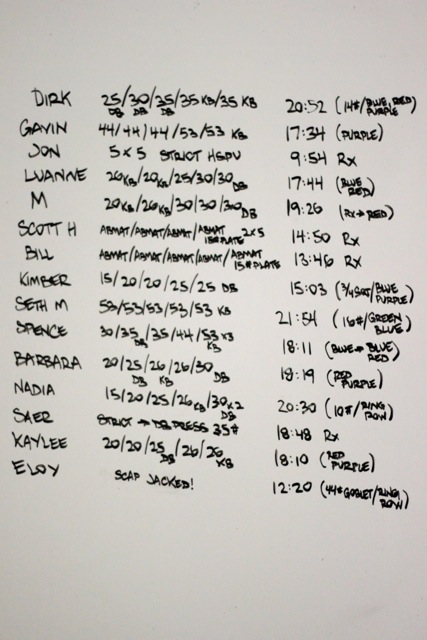 DIRK 25/30/35/35 KB/35 KB 20:52 (14#/BLUE, RED
DB DB DB PURPLE)
GAVIN 44/44/44/53/53 KB 17:34 (PURPLE)
JON 5x5 STRICT HSPU 9:54 Rx
LUANNE 26KB/20KB/25/30/30DB 17:44 (BLUE RED)
M 20KB/26KB/30/30/30DB 19:26 (RX→RED)
SCOTT H ABMAT/ABMAT/ABMAT/ABMAT 2x5 14:50 Rx
15# PLATE
BILL ABMAT/ABMAT/ABMAT/ABMAT/ABMAT 13:46 Rx
15# PLATE
KIMBER 15/20/20/25/25 DB 15:03 (3/4 SQT/BLUE
PURPLE)
SETH M 53/53/53/53/53 KB 21:54 (16#/GREEN
BLUE)
SPENCE 30/35/35/44/53x3 18:11 (BLUE→BLUE
DB KB RED)
BARBARA 20/25/26/26/30 18:19 (RED
DB KB DB PURPLE)
NADIA 15/20/25/26KB/30x2 20:30 (10#/RING
DB ROW)
SAER STRICT → DB PRESS 35# 18:48 Rx
KAYLEE 20/20/25/26/26 18:10 (RED
DB KB PURPLE)
ELOY SCAP JACKED! 12:20 (44# GOBLET/RING
ROW)